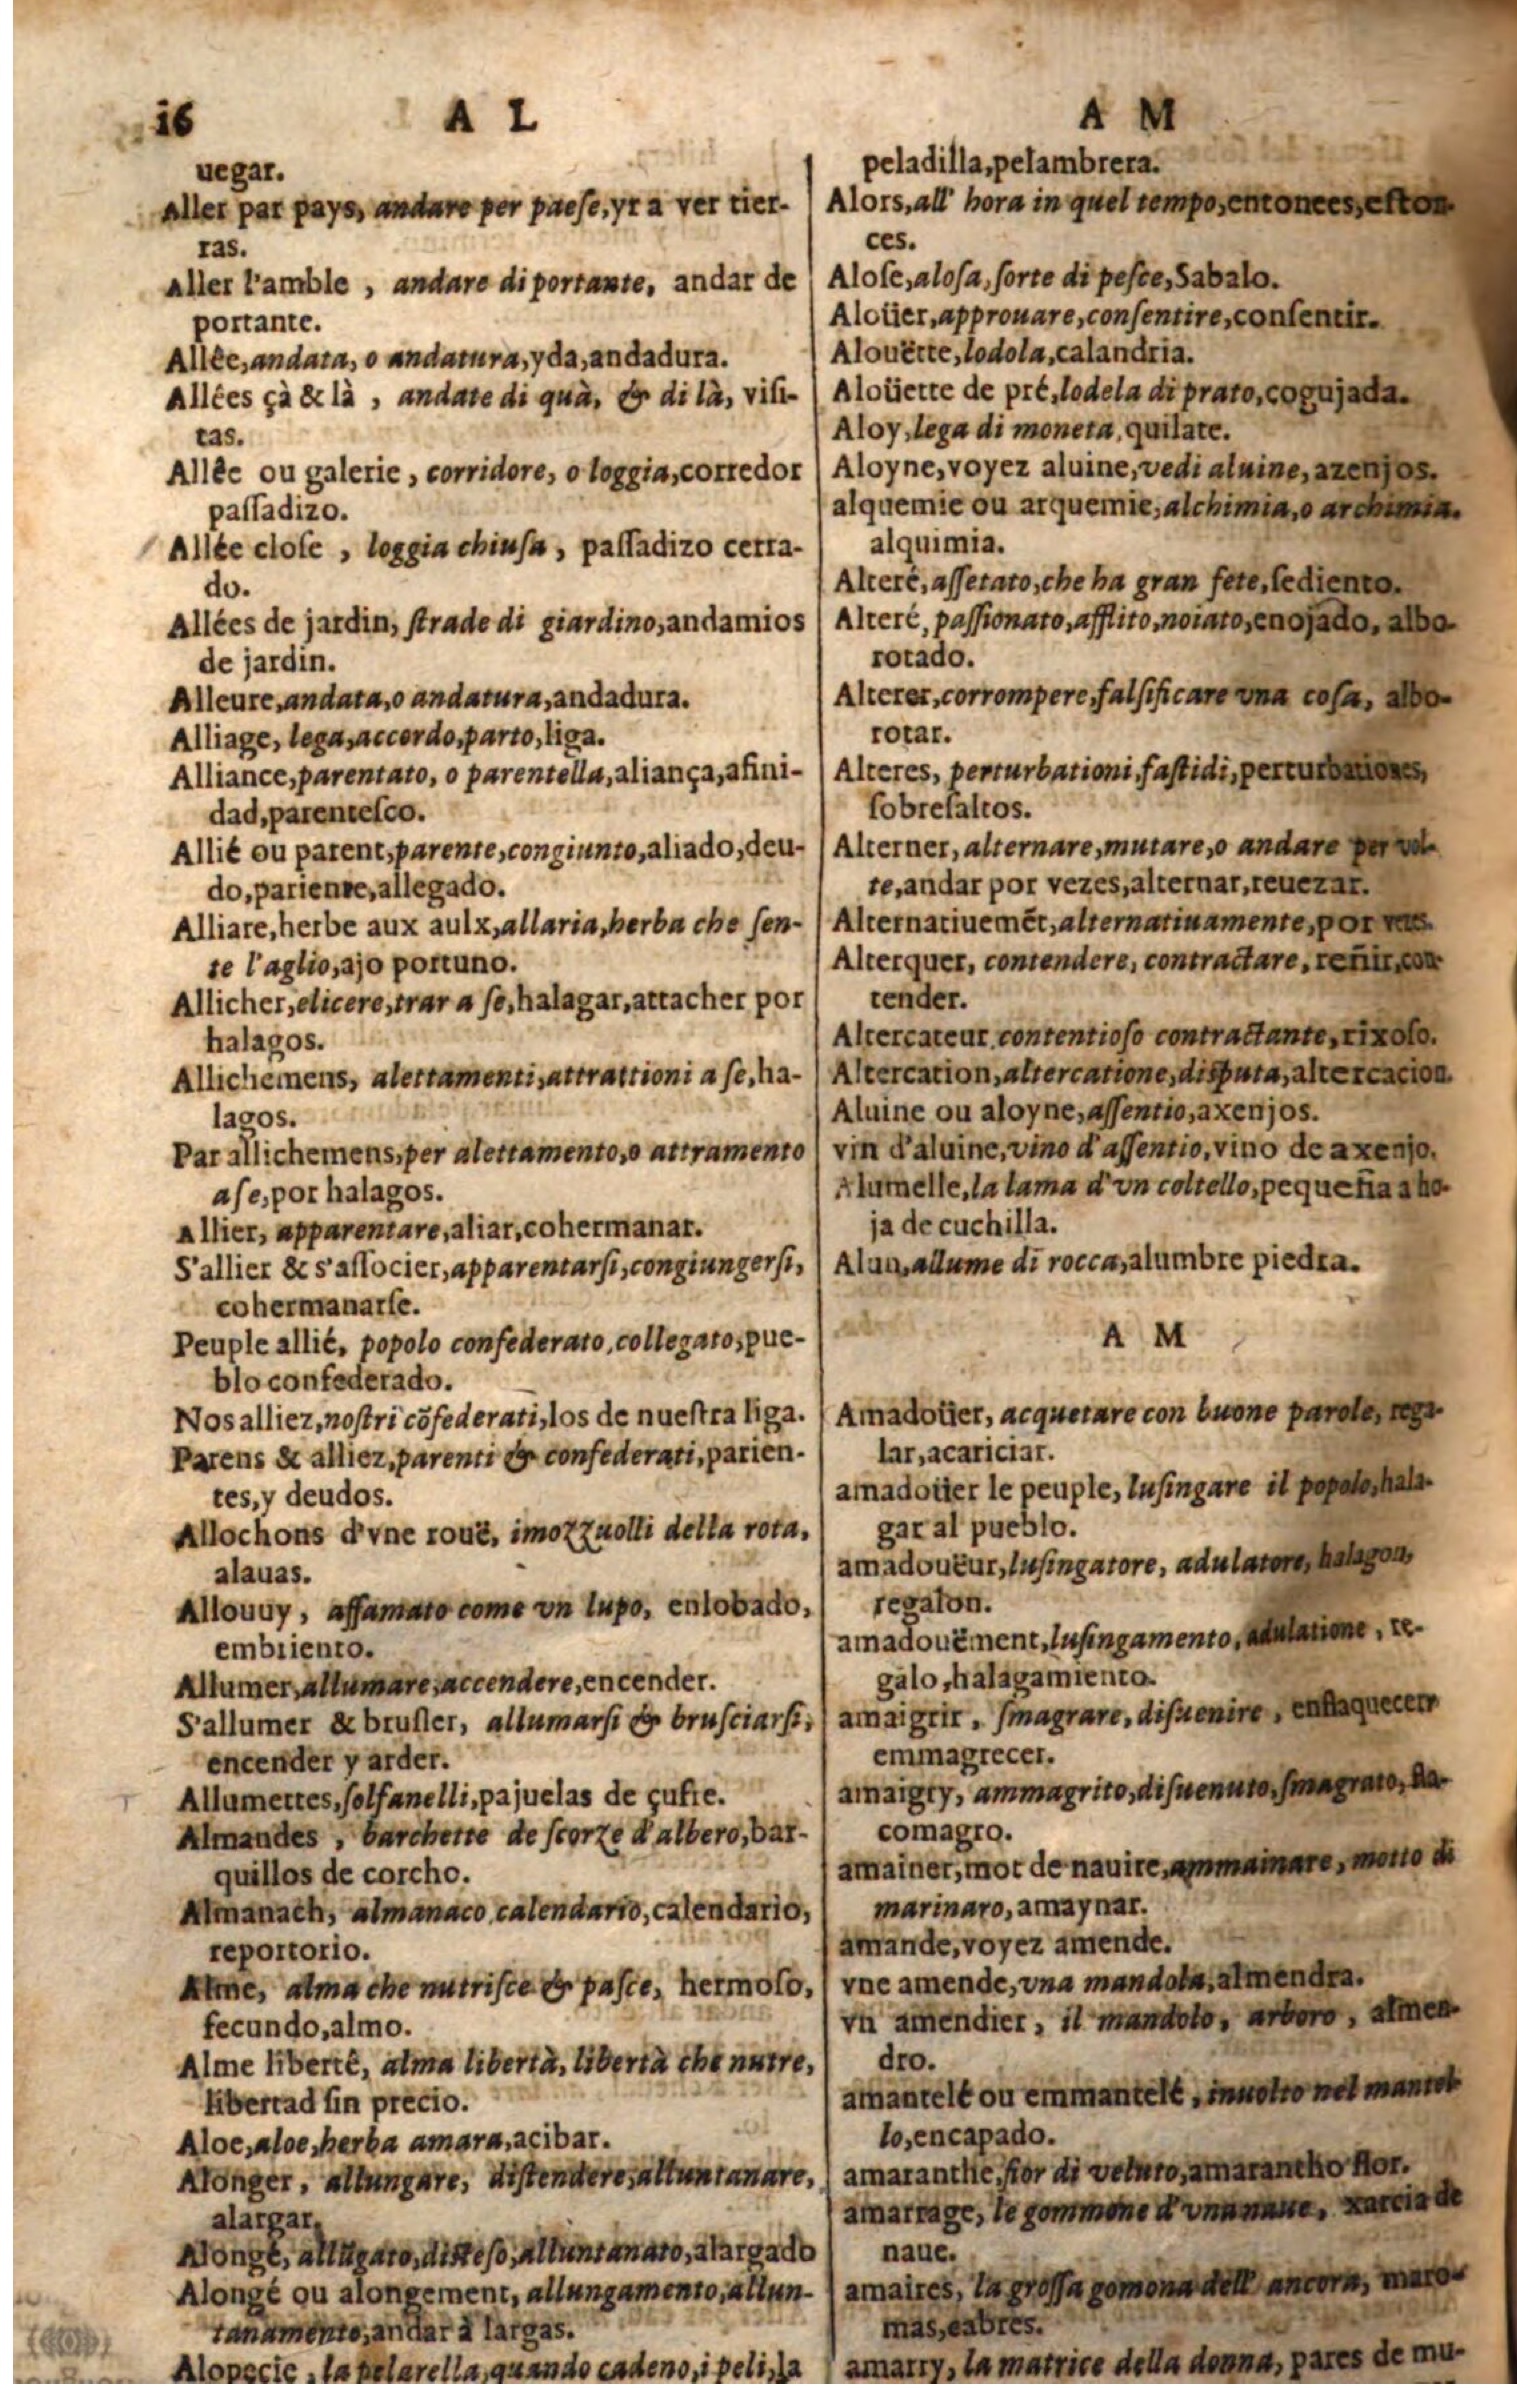 16 A L
uegar.
Aller par pays, andare per paese,yr a ver tier-
ras.
Aller l'amble , andare di portante, andar de
portante.
Allée,andata, o andatura,yda,andadura.
Allées çà & là , andate di quà, & di là, visi-
tas.
Allée ou galerie , corridore, o loggia,corredor
passadizo.
Allée close , loggia chiusa , passadizo cerra-
do.
Allées de jardin, strade di giardino,andamios
de jardin.
Alleure,andata,o andatura,andadura.
Alliage, lega,accordo,parto,liga.
Alliance,parentato, o parentella,aliança,afini-
dad,parentesco.
Allié ou parent,parente,congiunto,aliado,deu-
do,pariente,allegado.
Alliare,herbe aux aulx,allaria,herba che sen-
te l'aglio,ajo portuno.
Allicher,elicere,trar a se,halagar,attacher por
halagos.
Allichemens, alettamenti,attrattioni a se,ha-
lagos.
Par allichemens,per alettamento,o attramento
a se,por halagos.
Allier, apparentare,aliar,cohermanar.
S'allier & s'associer,apparentarsi,congiungersi,
cohermanarse.
Peuple allié, popolo confederato,collegato,pue-
blo confederado.
Nos alliez,nostri cõfederati,los de nuestra liga.
Parens & alliez,parenti & confederati,parien-
tes,y deudos.
Allochons d'vne rouë, imozzuolli della rota,
alauas.
Allouuy , affamato come vn lupo, enlobado,
embriento.
Allumer,allumare,accendere,encender.
S'allumer & brusler, allumarsi & brusciarsi,
encender y arder.
Allumettes,solfanelli,pajuelas de çufre.
Almandes , barchette de scorze d'albero,bar-
quillos de corcho.
Almanach, almanaco,calendario,calendario,
reportorio.
Alme, alma che nutrisce & pasce, hermoso,
fecundo,almo.
Alme liberté, alma libertà, libertà che nutre,
libertad sin precio.
Aloe,aloe,herba amara,acibar.
Alonger , allungare, distendere,alluntanare,
alargar.
Alongé, allũgato,disteso,alluntanato,alargado
Alongé ou alongement, allungamento,allun-
tanamento,andar à largas.
Alopecie , la pelarella,quando cadeno,i peli,la
A M
peladilla,pelambrera.
Alors,all' hora in quel tempo,entonces,eston-
ces.
Alose,alosa,sorte di pesce,Sabalo.
Aloüer,approuare,consentire,consentir.
Alouëtte,lodola,calandria.
Aloüette de pré,lodela di prato,cogujada.
Aloy,lega di moneta,quilate.
Aloyne,voyez aluine,vedi aluine,azenjos.
alquemie ou arquemie,alchimia,o archimia.
alquimia.
Alteré,assetato,che ha gran sete,sediento.
Alteré,passionato,afflito,noiato,enojado, albo-
rotado.
Alterer,corrompere,falsificare vna cosa, albo-
rotar.
Alteres, perturbationi,fastidi,perturbationes,
sobresaltos.
Alterner,alternare,mutare,o andare per vol-
te,andar por vezes,alternar,reuezar.
Alternatiuemẽt,alternatiuamente,por vezes.
Alterquer, contendere, contractare, reñir,con-
tender.
Altercateur,contentioso contractante,rixoso.
Altercation,altercatione,disputa,altercacion.
Aluine ou aloyne,assentio,axenjos.
vin d'aluine,vino d'assentio,vino de axenjo.
Alumelle,la lama d'vn coltello,pequeña a ho-
ja de cuchilla.
Alun,allume di rocca,alumbre piedra.
A M
Amadoüer, acquetare con buone parole, rega-
lar,acariciar.
amadoüer le peuple, lusingare il popolo,hala-
gar al pueblo.
amadouëur,lusingatore, adulatore, halagon,
regalon.
amadouëment,lusingamento, adulatione , re-
galo,halagamiento.
amaigrir , smagrare, disuenire , enflaquecerr
emmagrecer.
amaigry, ammagrito,disuenuto,smagrato,fla-
comagro.
amainer,mot de nauire,ammainare, motto di
marinaro,amaynar.
amande,voyez amende.
vne amende,vna mandola,almendra.
vn amendier , il mandolo, arboro , almen-
dro.
amantelé ou emmantelé , inuolto nel mantel-
lo,encapado.
amaranthe,fior di veluto,amarantho flor.
amarrage, le gommone d'vna naue, xarcia de
naue.
amaires, la grossa gomona dell' ancora, maro-
mas,cabres.
amarry, la matrice della donna, pares de mu-